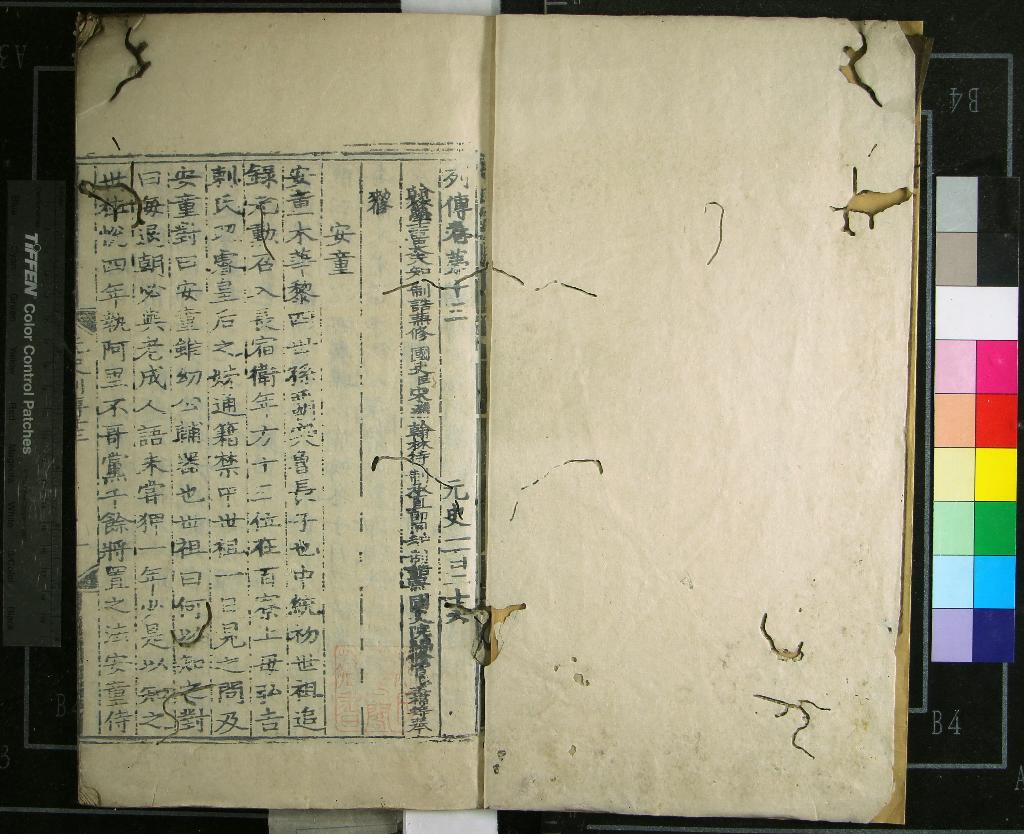 列傳卷第十三
元史一百二十六
翰林學士亞中大夫知制誥兼修國史臣宋濂翰林待制承直郎同知制誥兼國史院編修官臣王禕等奉
勑
安童
安童木華黎四世孫霸突魯長子也中統初世祖追
錄元勳召入長宿衛年方十三位在百寮上母弘吉
剌氏昭睿皇后之姊通籍禁中世祖一日見之問及
安童對曰安童雖幼公輔器也世祖曰何以知之對
曰每退朝必與老成人語未嘗狎一年少是以知之
世祖悅四年執阿里不哥黨千餘將置之法安童侍
TIFFEN Color Control Patches
B4
B4
A3